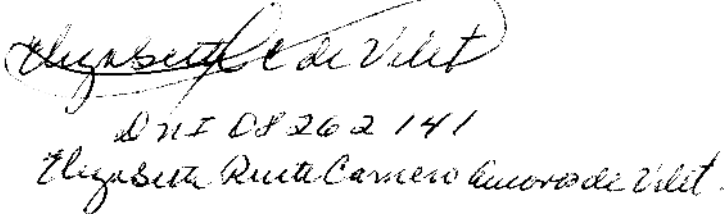 Elizabeth C de Vilet
DNI 08262141
Elizabeth Ruth Carnero de Vilet.